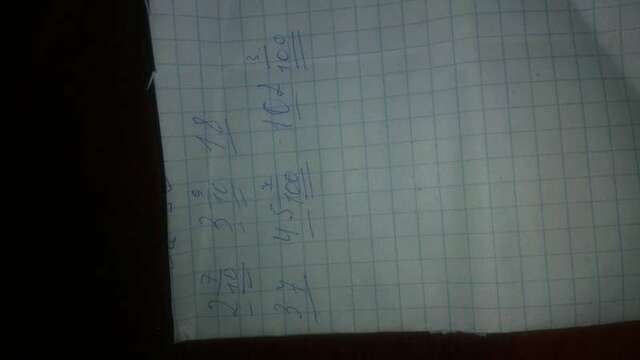 2 7/10 3 9/10 18
37 45 7/100 102 3/100